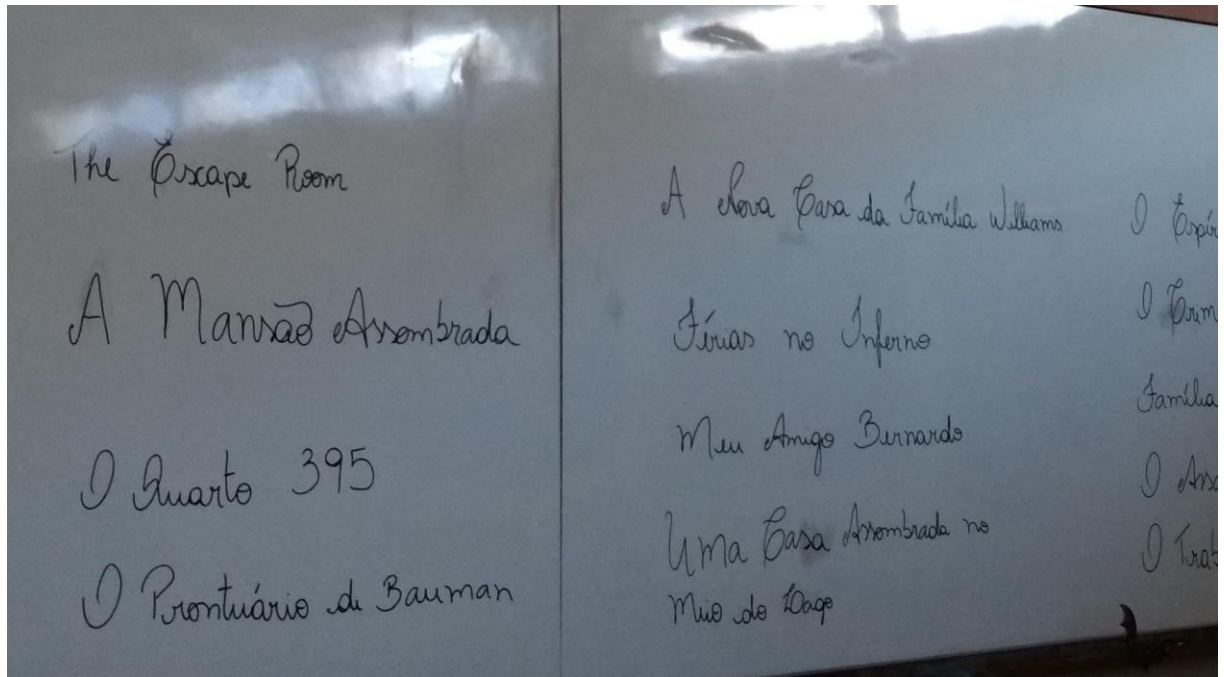 The Escape Room
A Mansão Assombrada
O Quarto 395
O Prontuário de Bauman
A Nova Casa da Família Williams
Férias no Inferno
Meu Amigo Bernardo
Uma Casa Assombrada no
Meio do Lago
O
O
Família
O
O